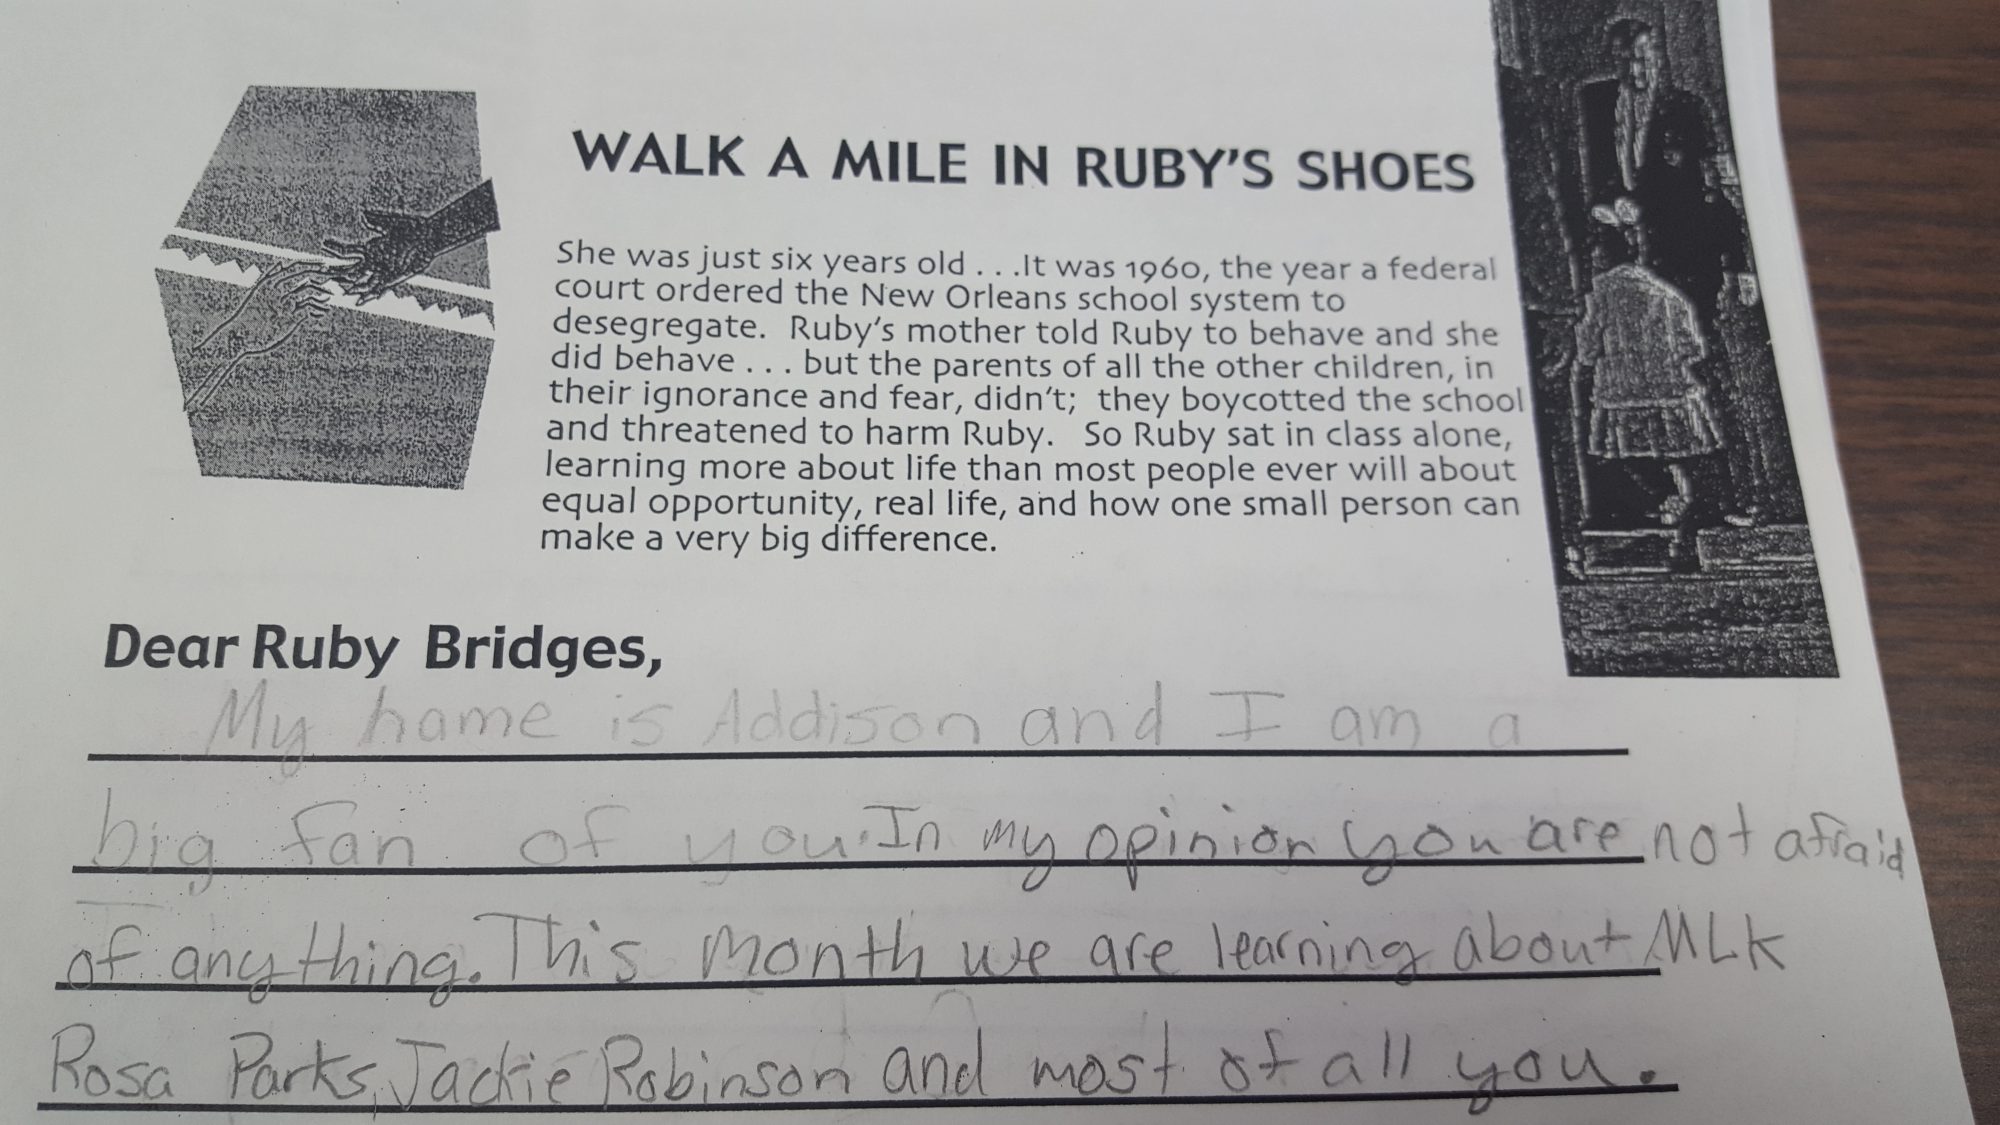 WALK A MILE IN RUBY'S SHOES
She was just six years old . . .It was 1960, the year a federal
court ordered the New Orleans school system to
desegregate. Ruby's mother told Ruby to behave and she
did behave . . . but the parents of all the other children, in
their ignorance and fear, didn't; they boycotted the school
and threatened to harm Ruby. So Ruby sat in class alone,
learning more about life than most people ever will about
equal opportunity, real life, and how one small person can
make a very big difference.
Dear Ruby Bridges,
My name is Addison and I am a
big fan of you. In my opinion you are not afraid
of anything. This month we are learning about MLK
Rosa Parks, Jackie Robinson and most of all you.